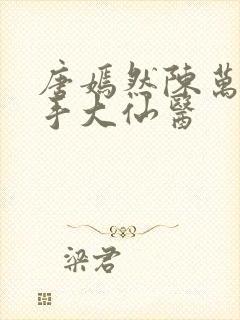 唐嫣然陳萬
手大仙醫
梁君